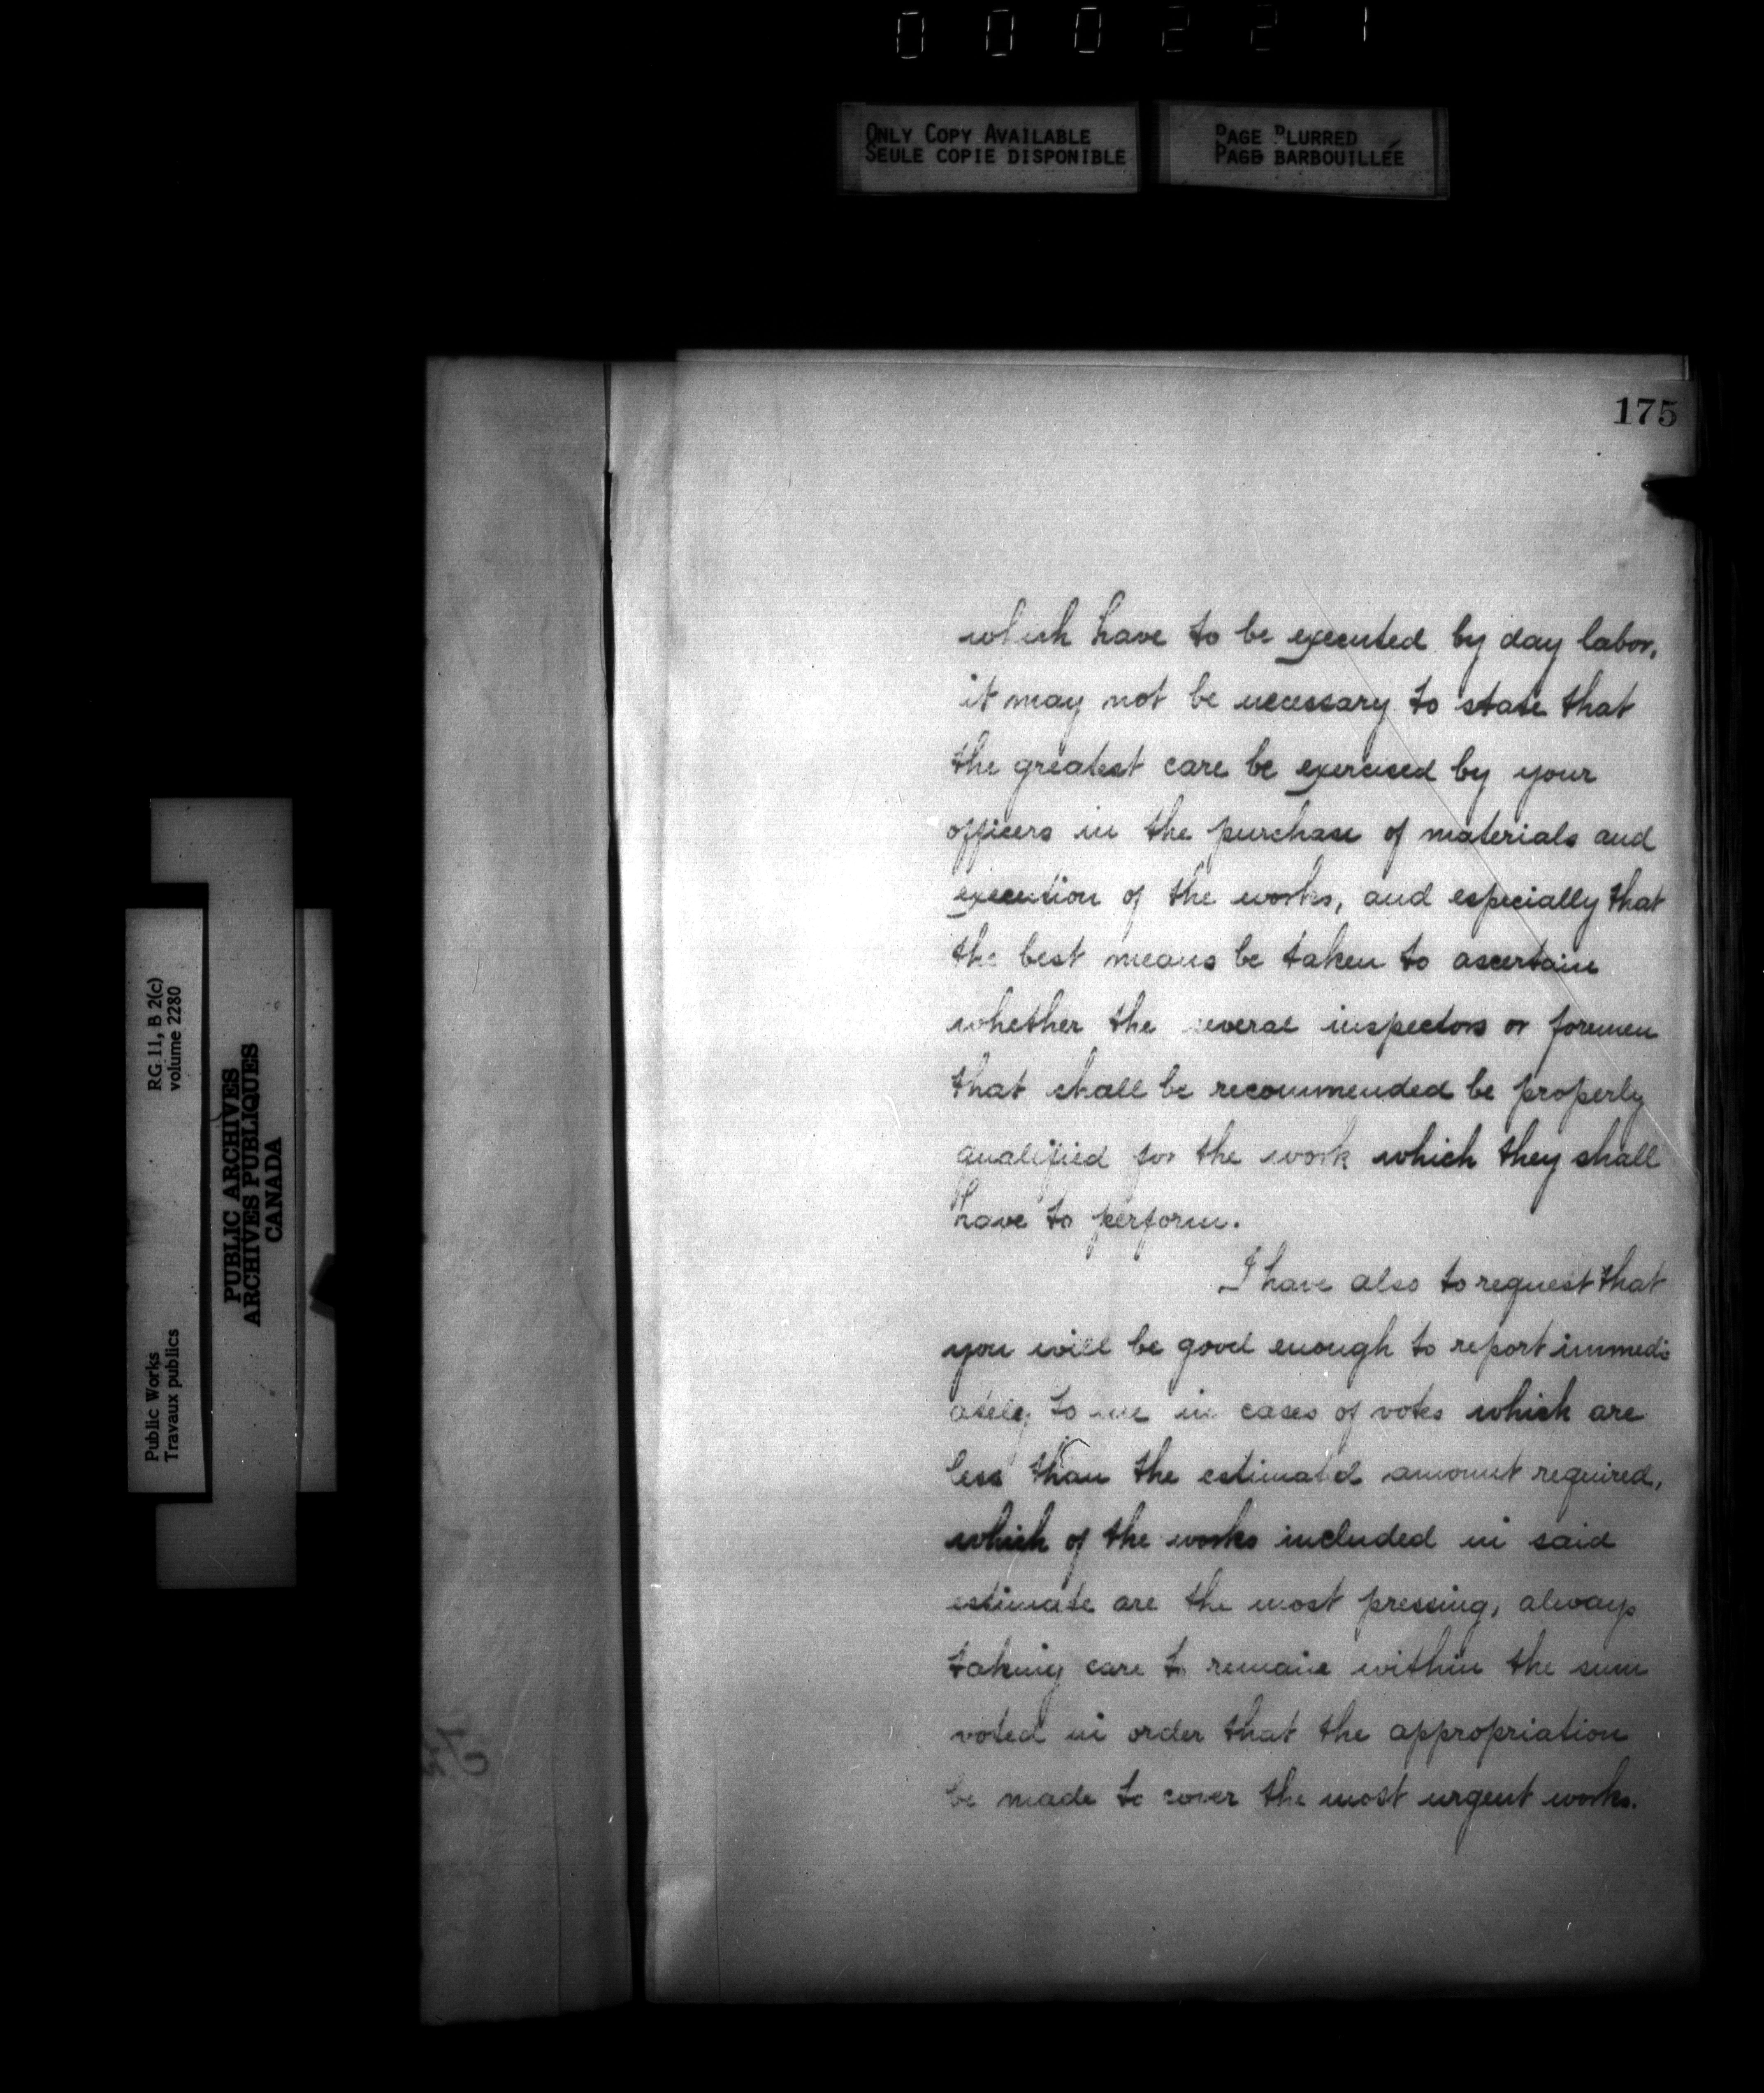 0 0 0 2 2 1
ONLY COPY AVAILABLE
SEULE COPIE DISPONIBLE
PAGE BLURRED
PAGE BARBOUILLÉE
175
which have to be executed by day labor,
it may not be necessary to state that
the greatest care be exercised by your
officers in the purchase of materials and
execution of the works, and especially that
the best means be taken to ascertain
whether the several inspectors or foremen
that shall be recommended be properly
qualified for the work which they shall
have to perform.
I have also to request that
you will be good enough to report immedi
ately to me in cases of votes which are
less than the estimated amount required,
which of the works included in said
estimate are the most pressing, always
taking care to remain within the sum
voted in order that the appropriation
be made to cover the most urgent works.
RG 11, B 2(c)
volume 2280
Public Works
Travaux publics
PUBLIC ARCHIVES
ARCHIVES PUBLIQUES
CANADA